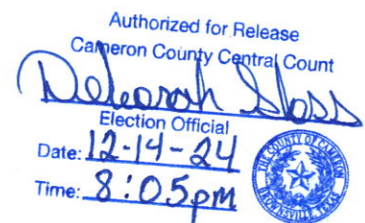 Authorized for Release
Cameron County Central Count
Deborah Sloss
Election Official
Date: 12-14-24
Time: 8:05pm
THE COUNTY OF CAMERON
BROWNSVILLE TEXAS